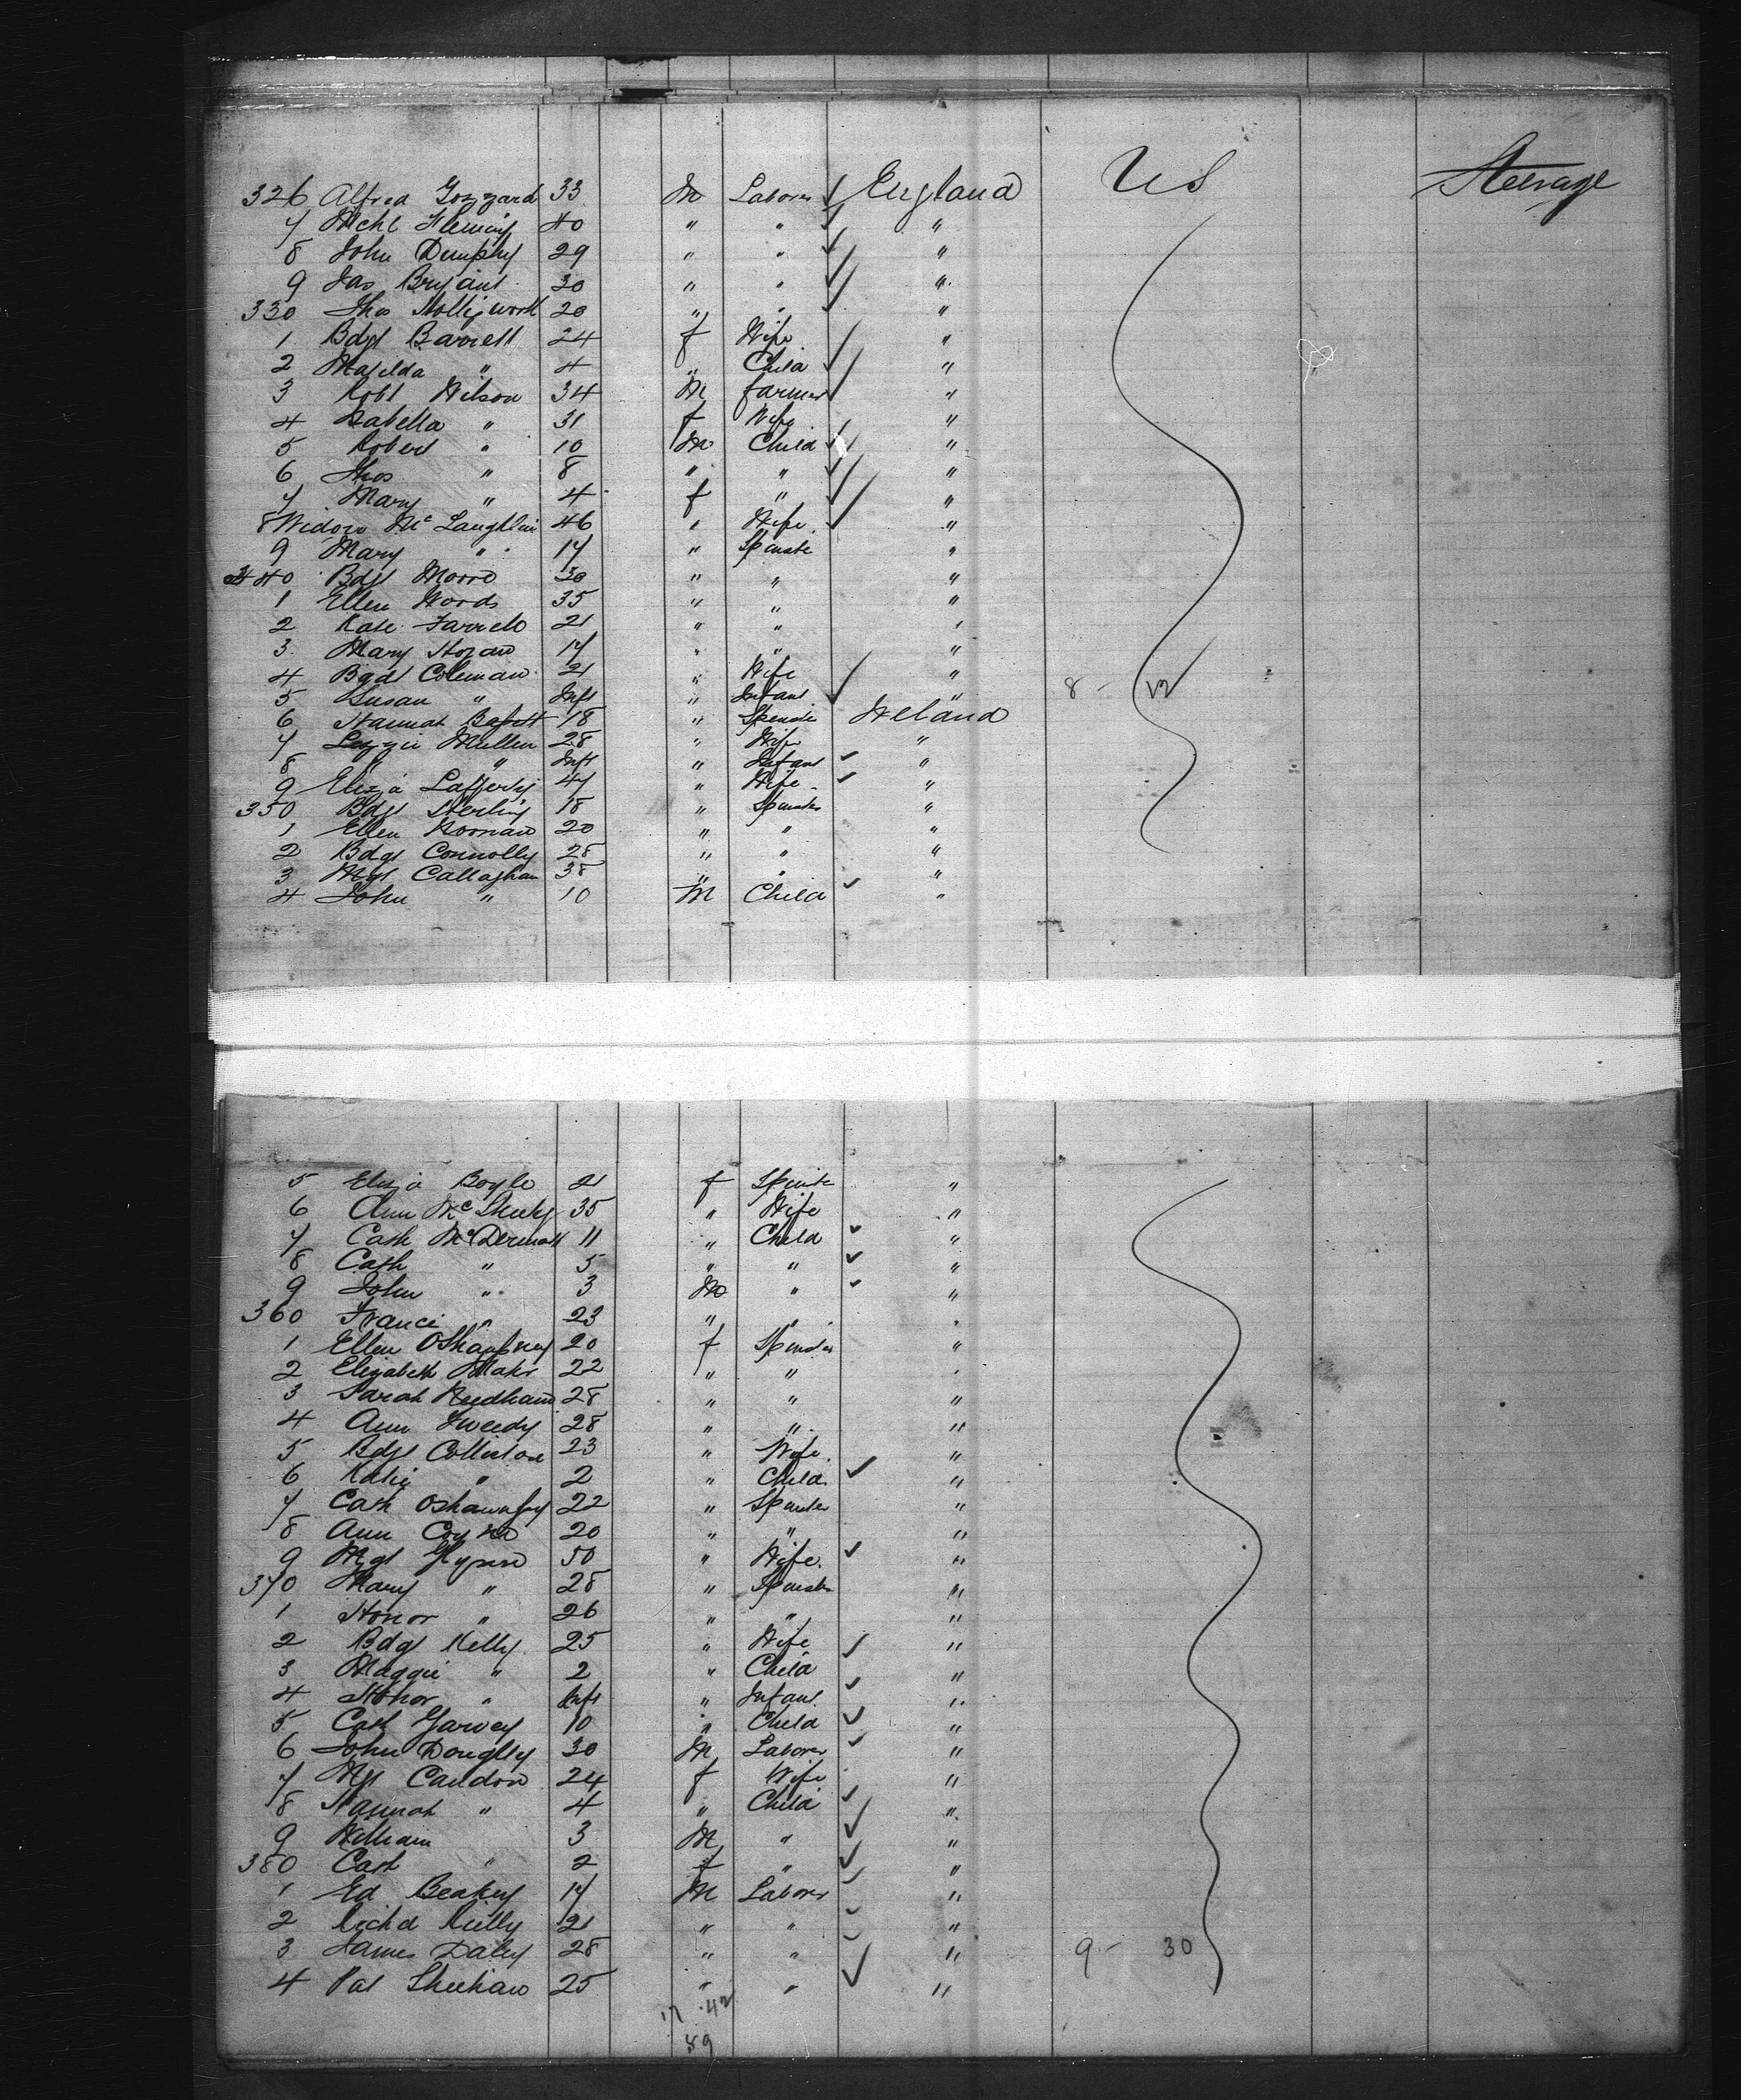 326 Alfred Gozzard 33 M Laborer England US Steerage
7 Michl Fleming 40 " " "
8 John Dumphy 29 " " "
9 Jas Bryant 30 " " "
330 Thos 20 " " "
1 Bdgt Barrett 24 f Wife "
2 Matilda " 4 " Child "
3 Robt Wilson 34 M farmer "
4 Isabella " 31 f Wife "
5 Robert " 10 M Child "
6 Thos " 8 " " "
7 Mary " 4 f " "
8 Widow McLaughlin 46 " Wife "
9 Mary " 17 " Spinster "
340 Bdgt 30 " " "
1 Ellen Woods 35 " " "
2 Kate Farrell 21 " " "
3 Mary Hogan 17 " " "
4 Bgdt Coleman 21 " Wife "
5 Susan " Inft " Infant " 8 - 12
6 Hannah 18 " Spinster Ireland
7 Lizzie Mullen 28 " Wife "
8 " " Inft " Infant "
9 Eliza Lafferty 47 " Wife "
350 Bdgt Sterling 18 " Spinster "
1 Ellen 20 " " "
2 Bdgt Connolly 28 " " "
3 Mgt Callaghan 38 " " "
4 John " 10 M Child "
5 Eliza Boyle 21 f Spinster "
6 Ann 35 " Wife "
7 Cath McDermott 11 " Child "
8 Cath " 5 " " "
9 John " 3 M " "
360 Franci " 23 " " "
1 Ellen 20 f Spinster "
2 Elizabeth 22 " " "
3 Sarah Needham 28 " " "
4 Ann Tweedy 28 " " "
5 Bdgt 23 " Wife "
6 Katie " 2 " Child "
7 Cath 22 " Spinster "
8 Ann Coyne 20 " " "
9 Mgt Glynn 50 " Wife "
370 Mary " 28 " Spinster "
1 Honor " 26 " " "
2 Bdgt Kelly 25 " Wife "
3 Maggie " 2 " Child "
4 Honor " Inft " Infant "
5 Cath Garvey 10 " Child "
6 John 30 M Laborer "
7 Mgt 24 f Wife "
8 Hannah " 4 " Child "
9 William 3 M " "
380 Cath " 2 f " "
1 Ed 17 M Laborer "
2 Richd Reilly 21 " " "
3 James Daley 28 " " " 9 - 30
4 Pat Sheehan 25 " " "
17 42
59